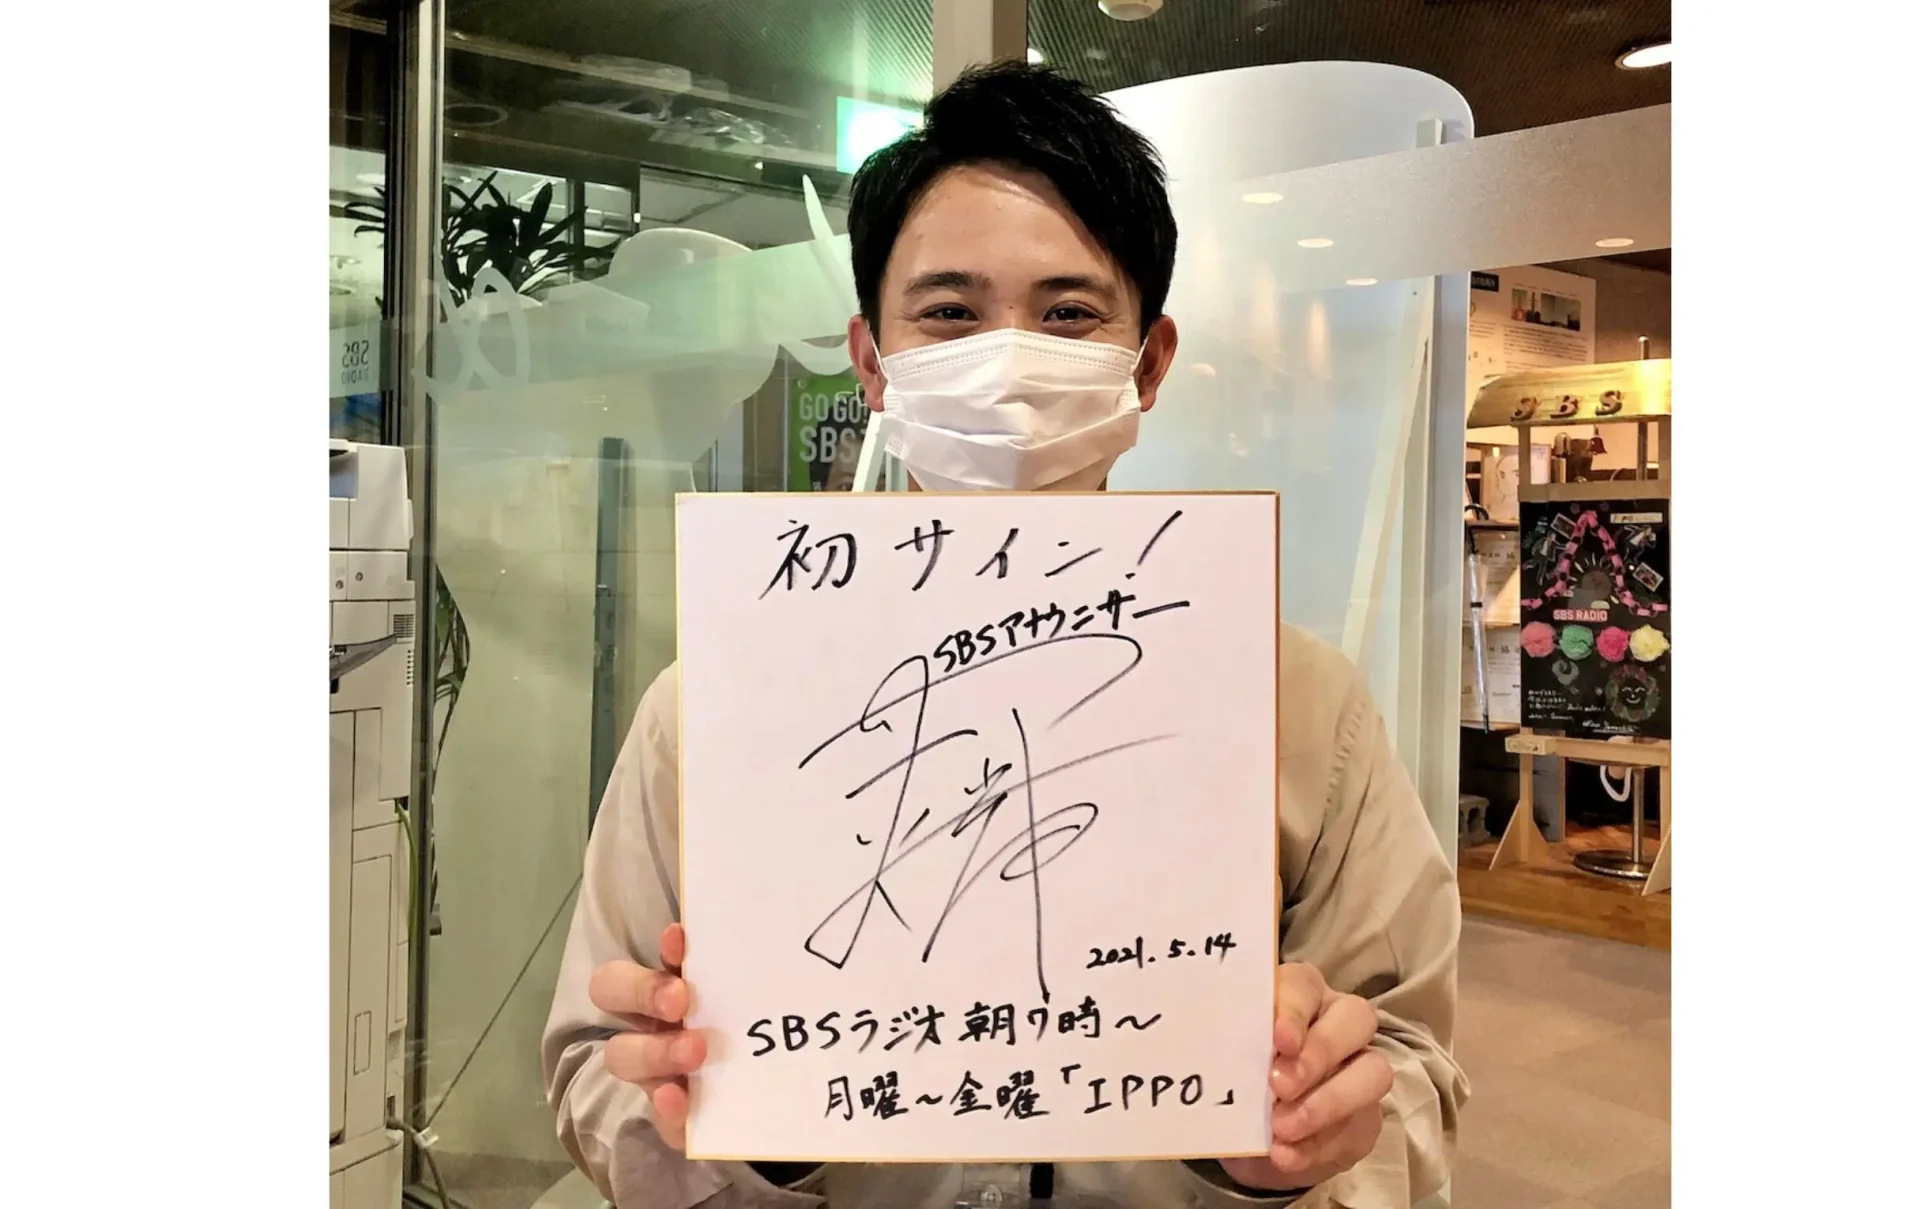 初サイン!
SBSアナウンサー
2021.5.14
SBSラジオ 朝7時～
月曜～金曜「IPPO」
GO GO!
SBS
SBS
RADIO
SBS
SBS RADIO